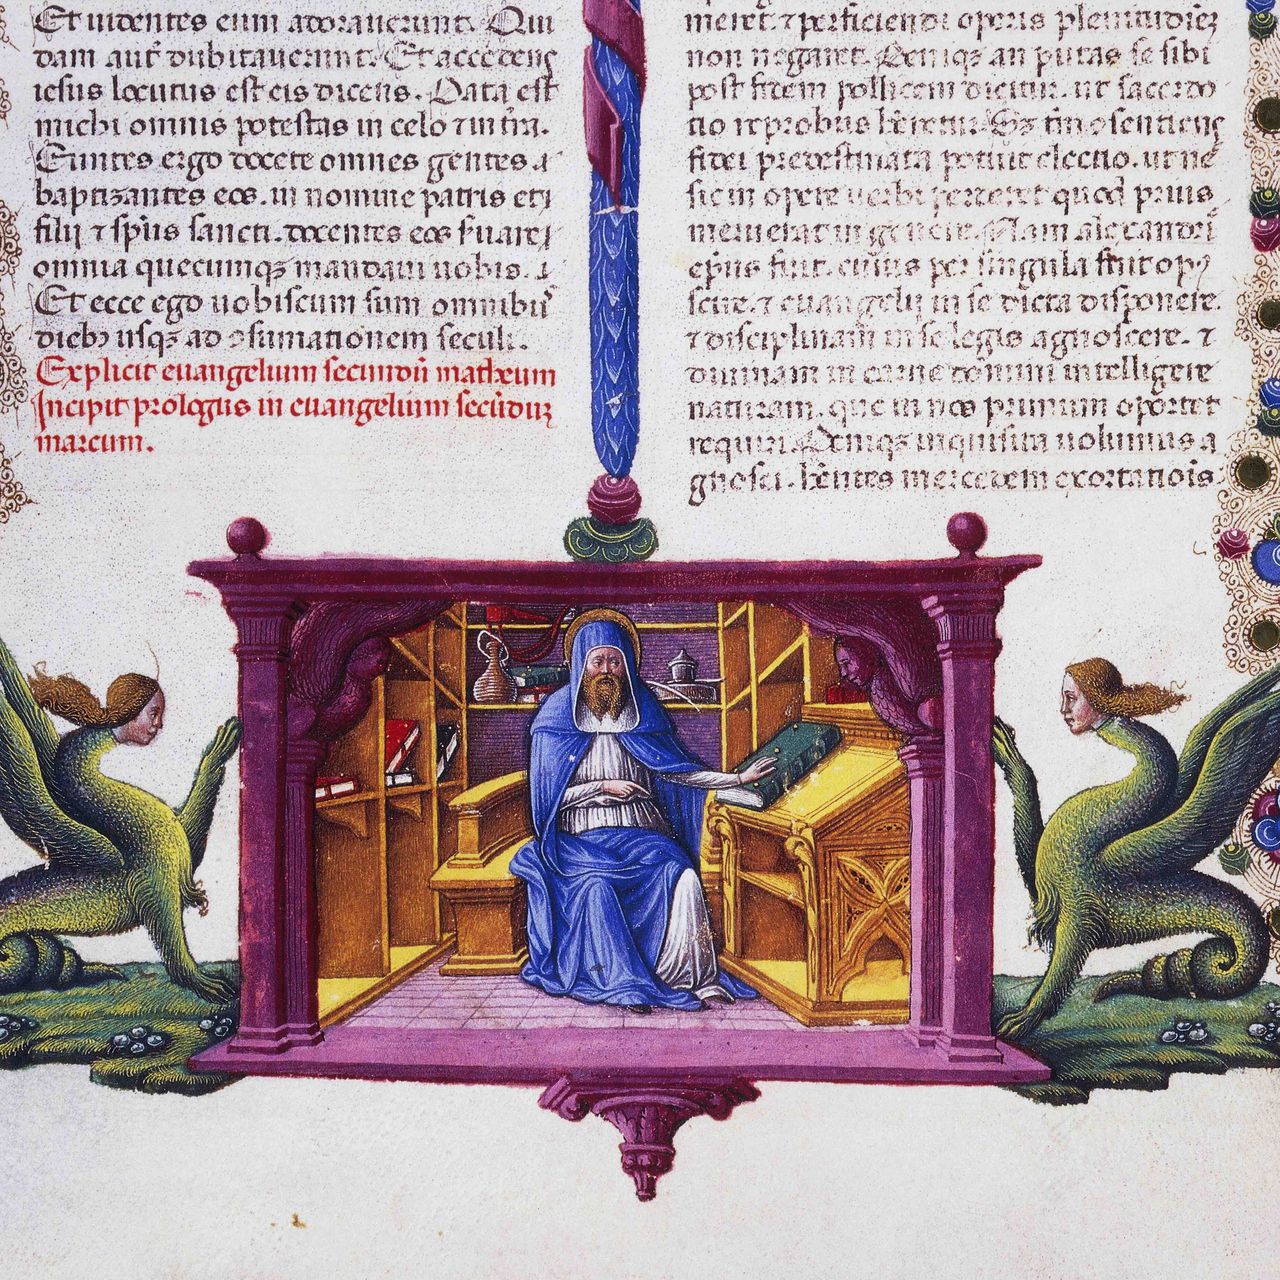 Et uidentes eum adorauerunt. Qui
dam aut̄ dubitauerunt. Et accedens
iesus locutus est eis dicens. Data est
michi omnis potestas in celo ⁊ in t̄ra.
Euntes ergo docete omnes gentes
baptizantes eos. in nomine patris et
filii ⁊ sp̄us sancti. docentes eos s̄uare
omnia quecumqꝫ mandaui uobis.
Et ecce ego uobiscum sum omnibꝰ
diebꝫ usqꝫ ad ꝯsumationem seculi.
Explicit euangelium secundū matheum
Incipit prologus in euangelium secūduꝫ
marcum.
meret. ⁊ perficiendi operis plenitudinē
non negaret. Deniqꝫ an putas se sibi
post fidem pollicem dicitur. ut sacerdo
tio reprobus
fidei predestinata potuit electio. ut ne
sic in opere uerbi perderet quod prius
meruerat in genere. Nam alexandri
ep̄us fuit. cuius per singula fuit opꝰ
scire. ⁊ euangelii in se dicta disponere.
⁊ disciplinam in se legis agnoscere. ⁊
diuinam in carne domini intelligere
naturam. que in nos primum oportet
requiri. Deniqꝫ inquisita uolumus a
gnosci. hn̄tes mercedem exortationis.